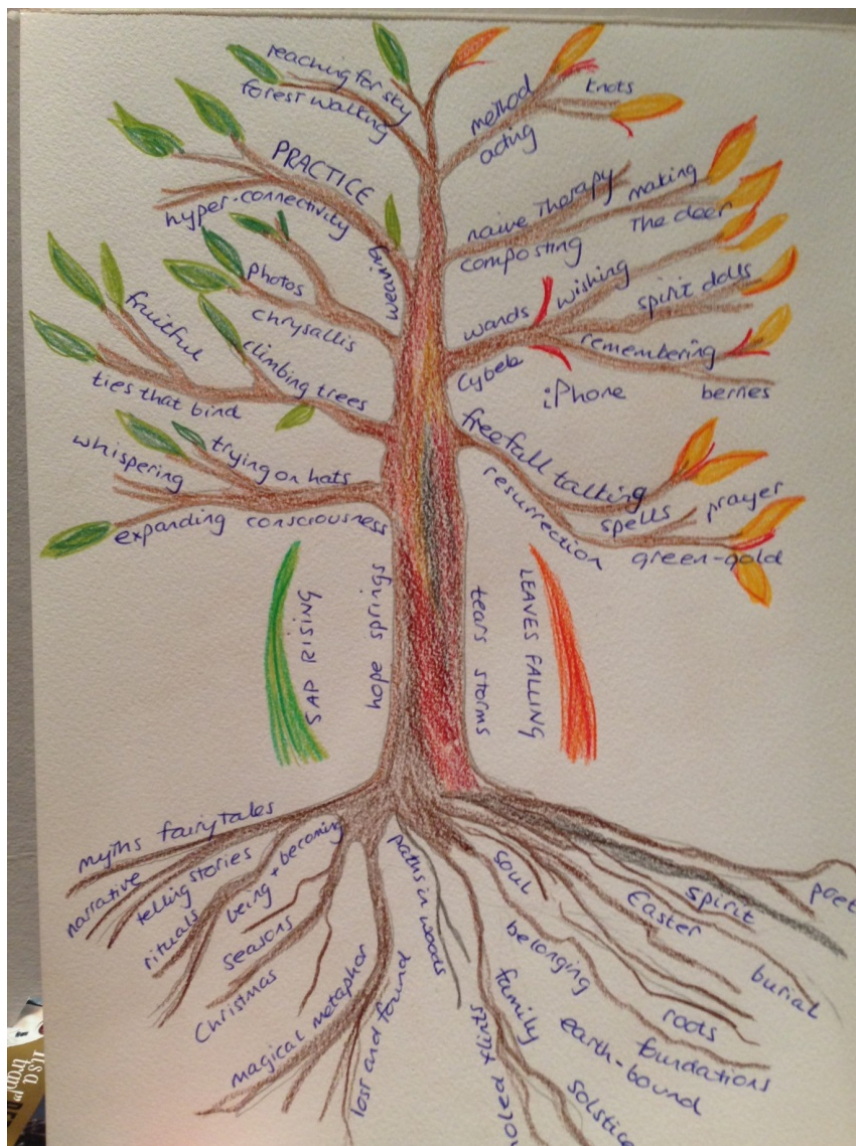 reaching for sky
forest walking
PRACTICE
hyper-connectivity
weaving
photos
chrysallis
fruitful
climbing trees
ties that bind
whispering
trying on hats
expanding consciousness
method
acting
knots
naive therapy
making
The deer
composting
wands
wishing
spirit dolls
Cybele
remembering
iPhone
berries
freefall talking
resurrection
spells
prayer
green-gold
SAP RISING
hope springs
tears storms
LEAVES FALLING
myths fairytales
narrative
telling stories
rituals
being + becoming
seasons
Christmas
magical metaphor
lost and found
paths in woods
soul
belonging
family
solstice
earth-bound
foundations
roots
Easter
spirit
burial